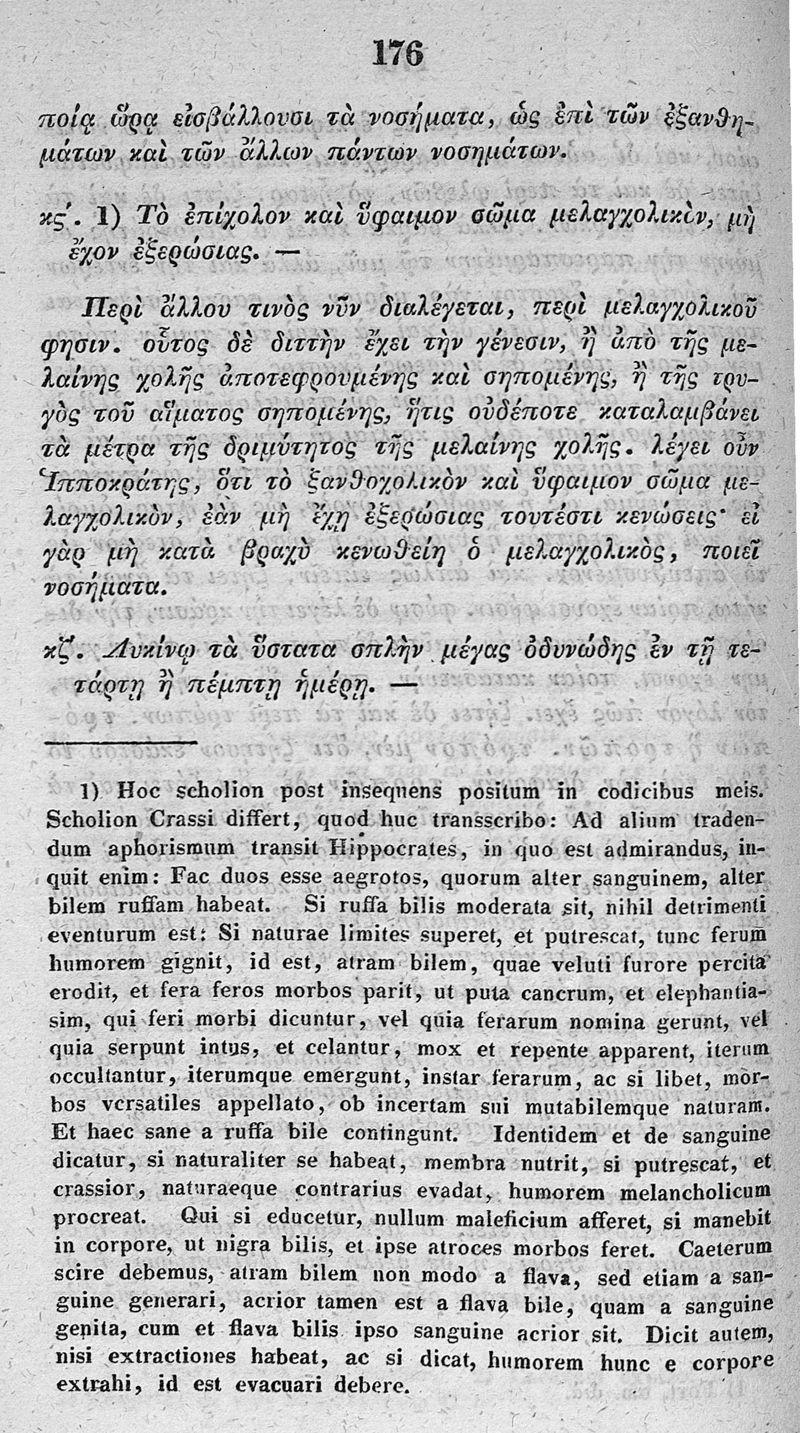 176
ποίᾳ ὥρᾳ εἰσβάλλουσι τὰ νοσήματα, ὡς ἐπὶ τῶν ἐξανθη-
μάτων καὶ τῶν ἄλλων πάντων νοσημάτων.
κς΄. 1) Τὸ ἐπίχολον καὶ ὕφαιμον σῶμα μελαγχολικὸν, μὴ
ἔχον ἐξερώσιας. —
Περὶ ἄλλου τινὸς νῦν διαλέγεται, περὶ μελαγχολικοῦ
φησιν. οὗτος δὲ διττὴν ἔχει τὴν γένεσιν, ἢ ἀπὸ τῆς με-
λαίνης χολῆς ἀποτεφρουμένης καὶ σηπομένης, ἢ τῆς τρυ-
γὸς τοῦ αἵματος σηπομένης, ἥτις οὐδέποτε καταλαμβάνει
τὰ μέτρα τῆς δριμύτητος τῆς μελαίνης χολῆς. λέγει οὖν
Ἱπποκράτης, ὅτι τὸ ξανθοχολικὸν καὶ ὕφαιμον σῶμα με-
λαγχολικὸν, ἐὰν μὴ ἔχῃ ἐξερώσιας τουτέστι κενώσεις· εἰ
γὰρ μὴ κατὰ βραχὺ κενωθείη ὁ μελαγχολικὸς, ποιεῖ
νοσήματα.
κζ΄. Λυκίνῳ τὰ ὕστατα σπλὴν μέγας ὀδυνώδης ἐν τῇ τε-
τάρτῃ ἢ πέμπτῃ ἡμέρῃ. —
1) Hoc scholion post insequens positum in codicibus meis.
Scholion Crassi differt, quod huc transscribo: Ad alium traden-
dum aphorismum transit Hippocrates, in quo est admirandus, in-
quit enim: Fac duos esse aegrotos, quorum alter sanguinem, alter
bilem ruffam habeat. Si ruffa bilis moderata sit, nihil detrimenti
eventurum est: Si naturae limites superet, et putrescat, tunc ferum
humorem gignit, id est, atram bilem, quae veluti furore percita
erodit, et fera feros morbos parit, ut puta cancrum, et elephantia-
sim, qui feri morbi dicuntur, vel quia ferarum nomina gerunt, vel
quia serpunt intus, et celantur, mox et repente apparent, iterum
occultantur, iterumque emergunt, instar ferarum, ac si libet, mor-
bos versatiles appellato, ob incertam sui mutabilemque naturam.
Et haec sane a ruffa bile contingunt. Identidem et de sanguine
dicatur, si naturaliter se habeat, membra nutrit, si putrescat, et
crassior, naturaeque contrarius evadat, humorem melancholicum
procreat. Qui si educetur, nullum maleficium afferet, si manebit
in corpore, ut nigra bilis, et ipse atroces morbos feret. Caeterum
scire debemus, atram bilem non modo a flava, sed etiam a san-
guine generari, acrior tamen est a flava bile, quam a sanguine
genita, cum et flava bilis ipso sanguine acrior sit. Dicit autem,
nisi extractiones habeat, ac si dicat, humorem hunc e corpore
extrahi, id est evacuari debere.